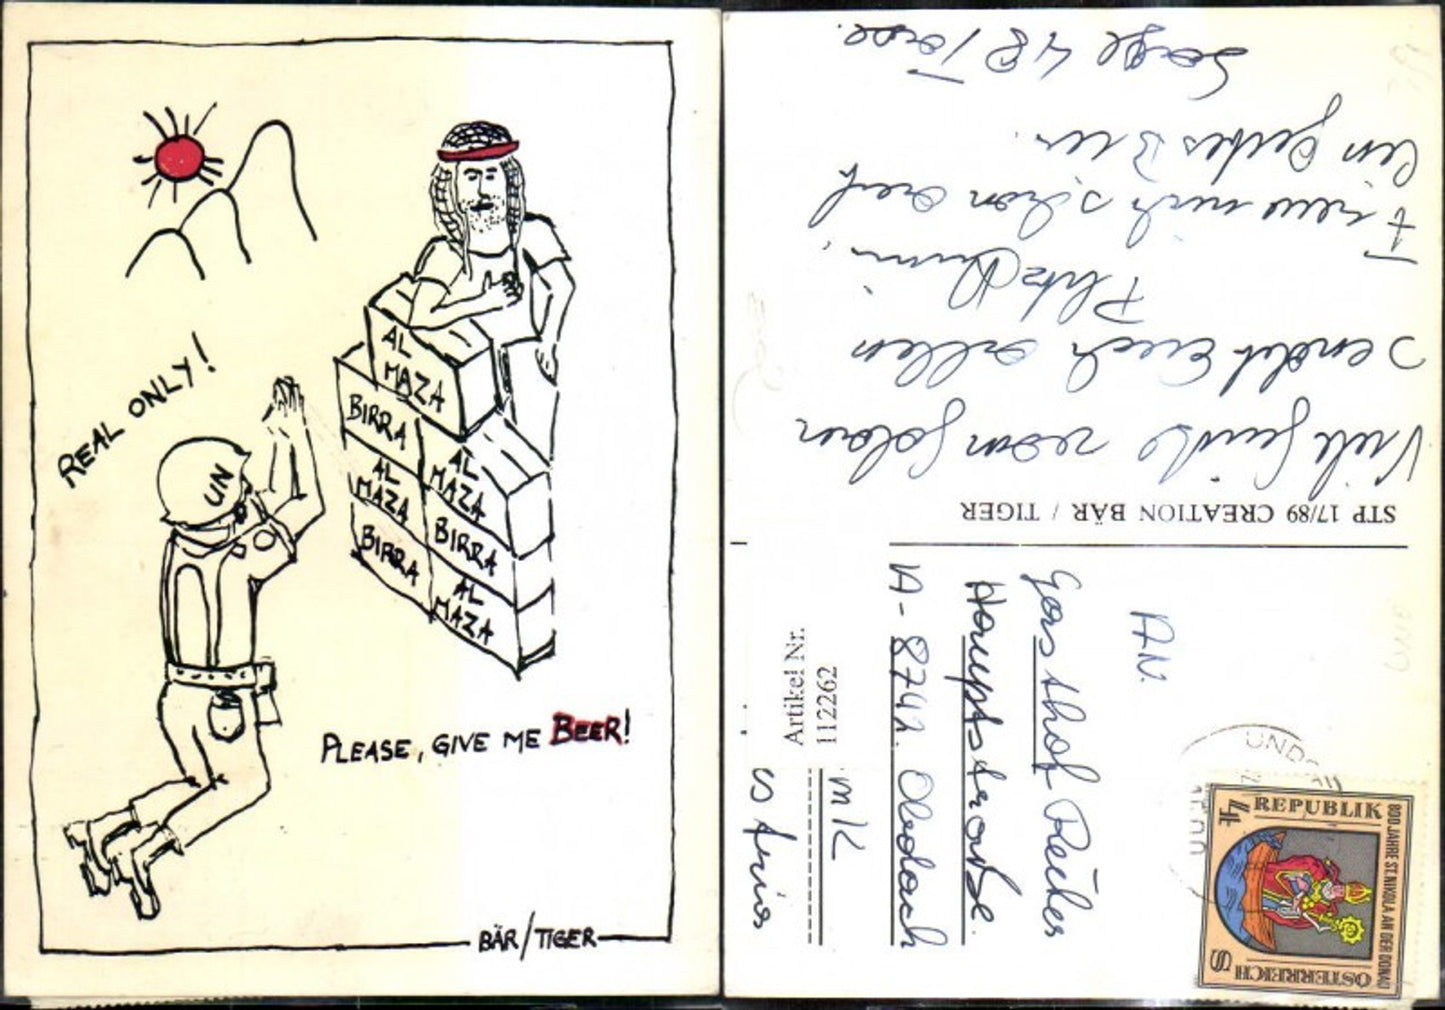 REAL ONLY!
UN
AL
MAZA
BIRRA
AL
MAZA
AL
MAZA
BIRRA
BIRRA
AL
MAZA
PLEASE, GIVE ME BEER!
BÄR/TIGER
Viele Grüße vom Golan
sendet Euch allen
Freu mich schon auf
ein Bier.
Sage 48 Tage.
STP 17/89 CREATION BÄR / TIGER
AN:
Gasthof
Hauptstraße.
A-8742. Obdach
mK
Artikel Nr.
112262
REPUBLIK
ÖSTERREICH
800 JAHRE ST. NIKOLA AN DER DONAU
S 4